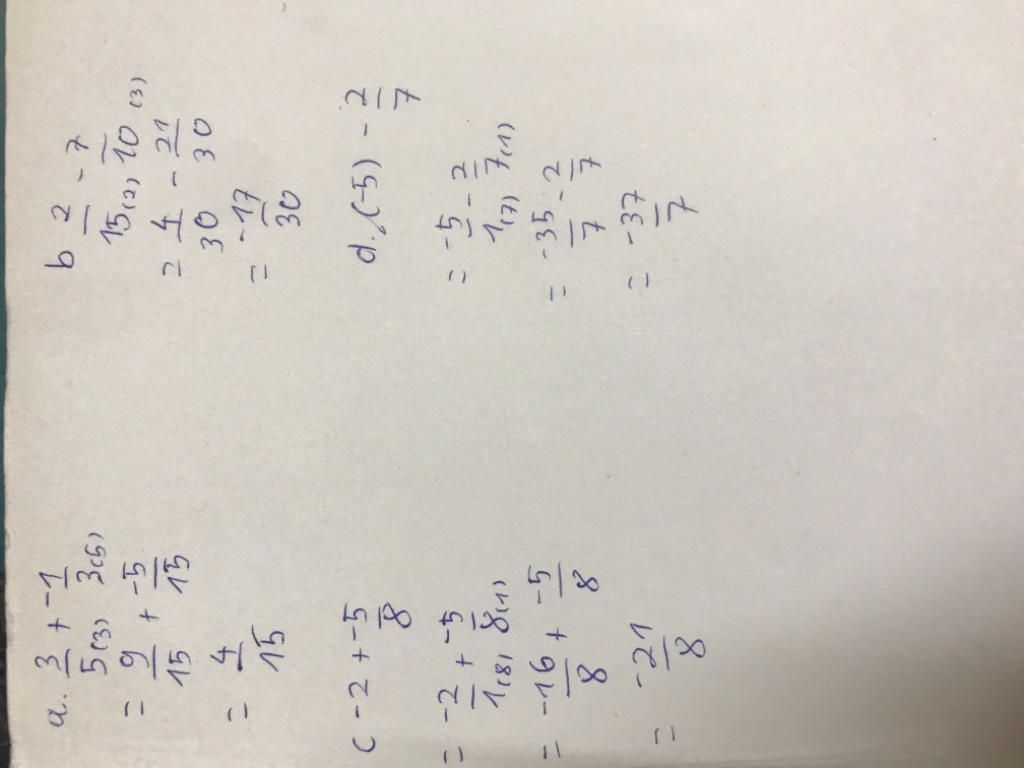 a. 3/5(3) + -1/3(5)
= 9/15 + -5/15
= 4/15
b 2/15(2) - 7/10(3)
= 4/30 - 21/30
= -17/30
c -2 + -5/8
= -2/1(8) + -5/8(1)
= -16/8 + -5/8
= -21/8
d. (-5) - 2/7
= -5/1(7) - 2/7(1)
= -35/7 - 2/7
= -37/7